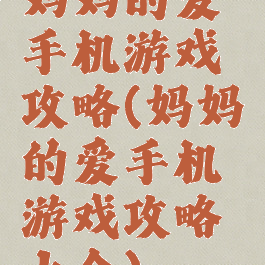 妈妈的爱
手机游戏
攻略(妈妈
的爱手机
游戏攻略
大全)